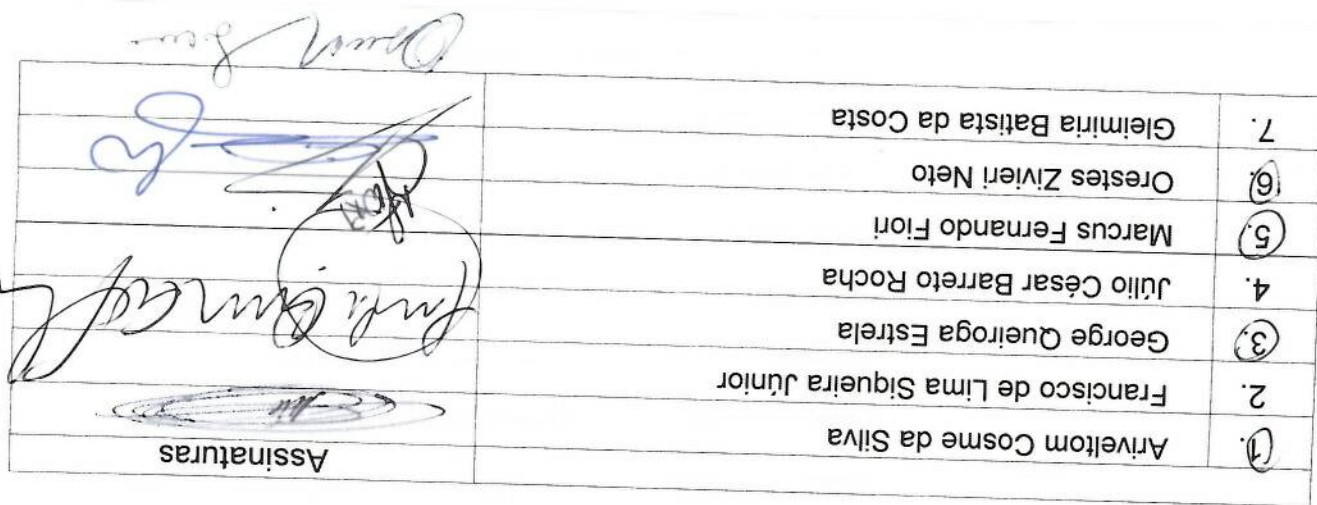 Assinaturas
1. Ariveltom Cosme da Silva
2. Francisco de Lima Siqueira Júnior
3. George Queiroga Estrela
4. Júlio César Barreto Rocha
5. Marcus Fernando Fiori
6. Orestes Zivieri Neto
7. Gleimiria Batista da Costa